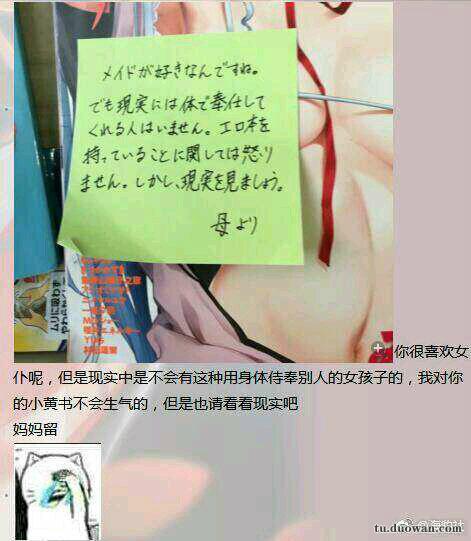 メイドが好きなんですね。
でも現実には体で奉仕して
くれる人はいません。エロ本を
持っていることに関しては怒り
ません。しかし、現実を見ましょう。
母より
ムリに吸わず
你很喜欢女
仆呢，但是现实中是不会有这种用身体侍奉别人的女孩子的，我对你
的小黄书不会生气的，但是也请看看现实吧
妈妈留
tu.duowan.com